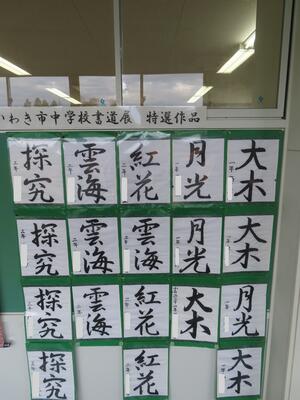 いわき市中学校書道展 特選作品
大木
一年
月光
一年
紅花
二年
雲海
二年
探究
三年
大木
月光
雲海
雲海
探究
月光
大木
紅花
雲海
探究
大木
紅花
探究